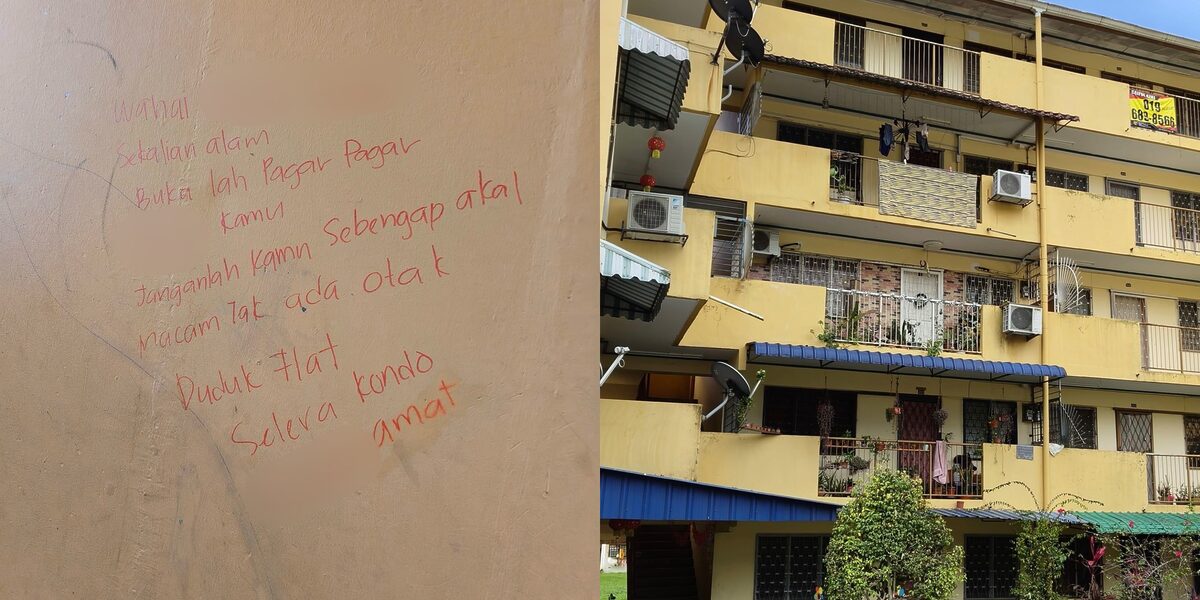 Wahai
Sekalian alam
Buka lah Pagar Pagar
kamu
Janganlah kamu Sebengap akal
macam Tak ada otak
Duduk Flat
Selera kondo
amat
019
683-8566